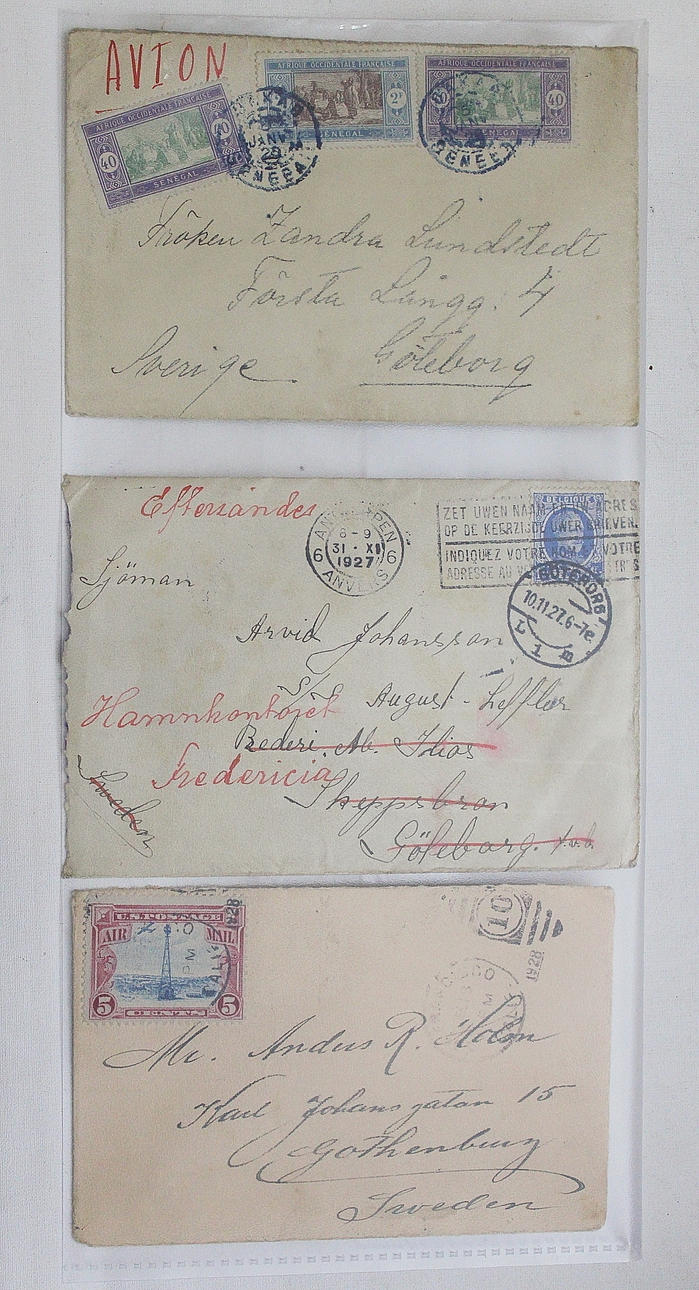 AVION
AFRIQUE OCCIDENTALE FRANÇAISE
40 40
SENEGAL
AFRIQUE OCCIDENTALE FRANÇAISE
2F
SENEGAL
AFRIQUE OCCIDENTALE FRANÇAISE
40
SENEGAL
JANV
28
Fröken Zandra Lundstedt
Första Långg. 4
Göteborg
Sverige
Eftersändes
ANTWERPEN
8-9
6 31 · XI 6
1927
ANVERS
ZET UWEN NAAM EN UW ADRES
OP DE KEERZIJDE UWER BRIEVEN.
INDIQUEZ VOTRE NOM VOTRE
ADRESSE AU
BELGIQUE
GÖTEBORG
10.11.27.6-7e
L 1 m
Sjöman
Arvid Johansson
S/S August Leffler
Hamnkontoret
Rederi. Ab. Idios
Fredericia
Sweden
Skeppsbron
Göteborg.
U.S. POSTAGE
AIR MAIL
5 5
CENTS
1928
10
1928
Mr. Anders R. Holm
Karl Johans gatan 15
Gothenburg
Sweden